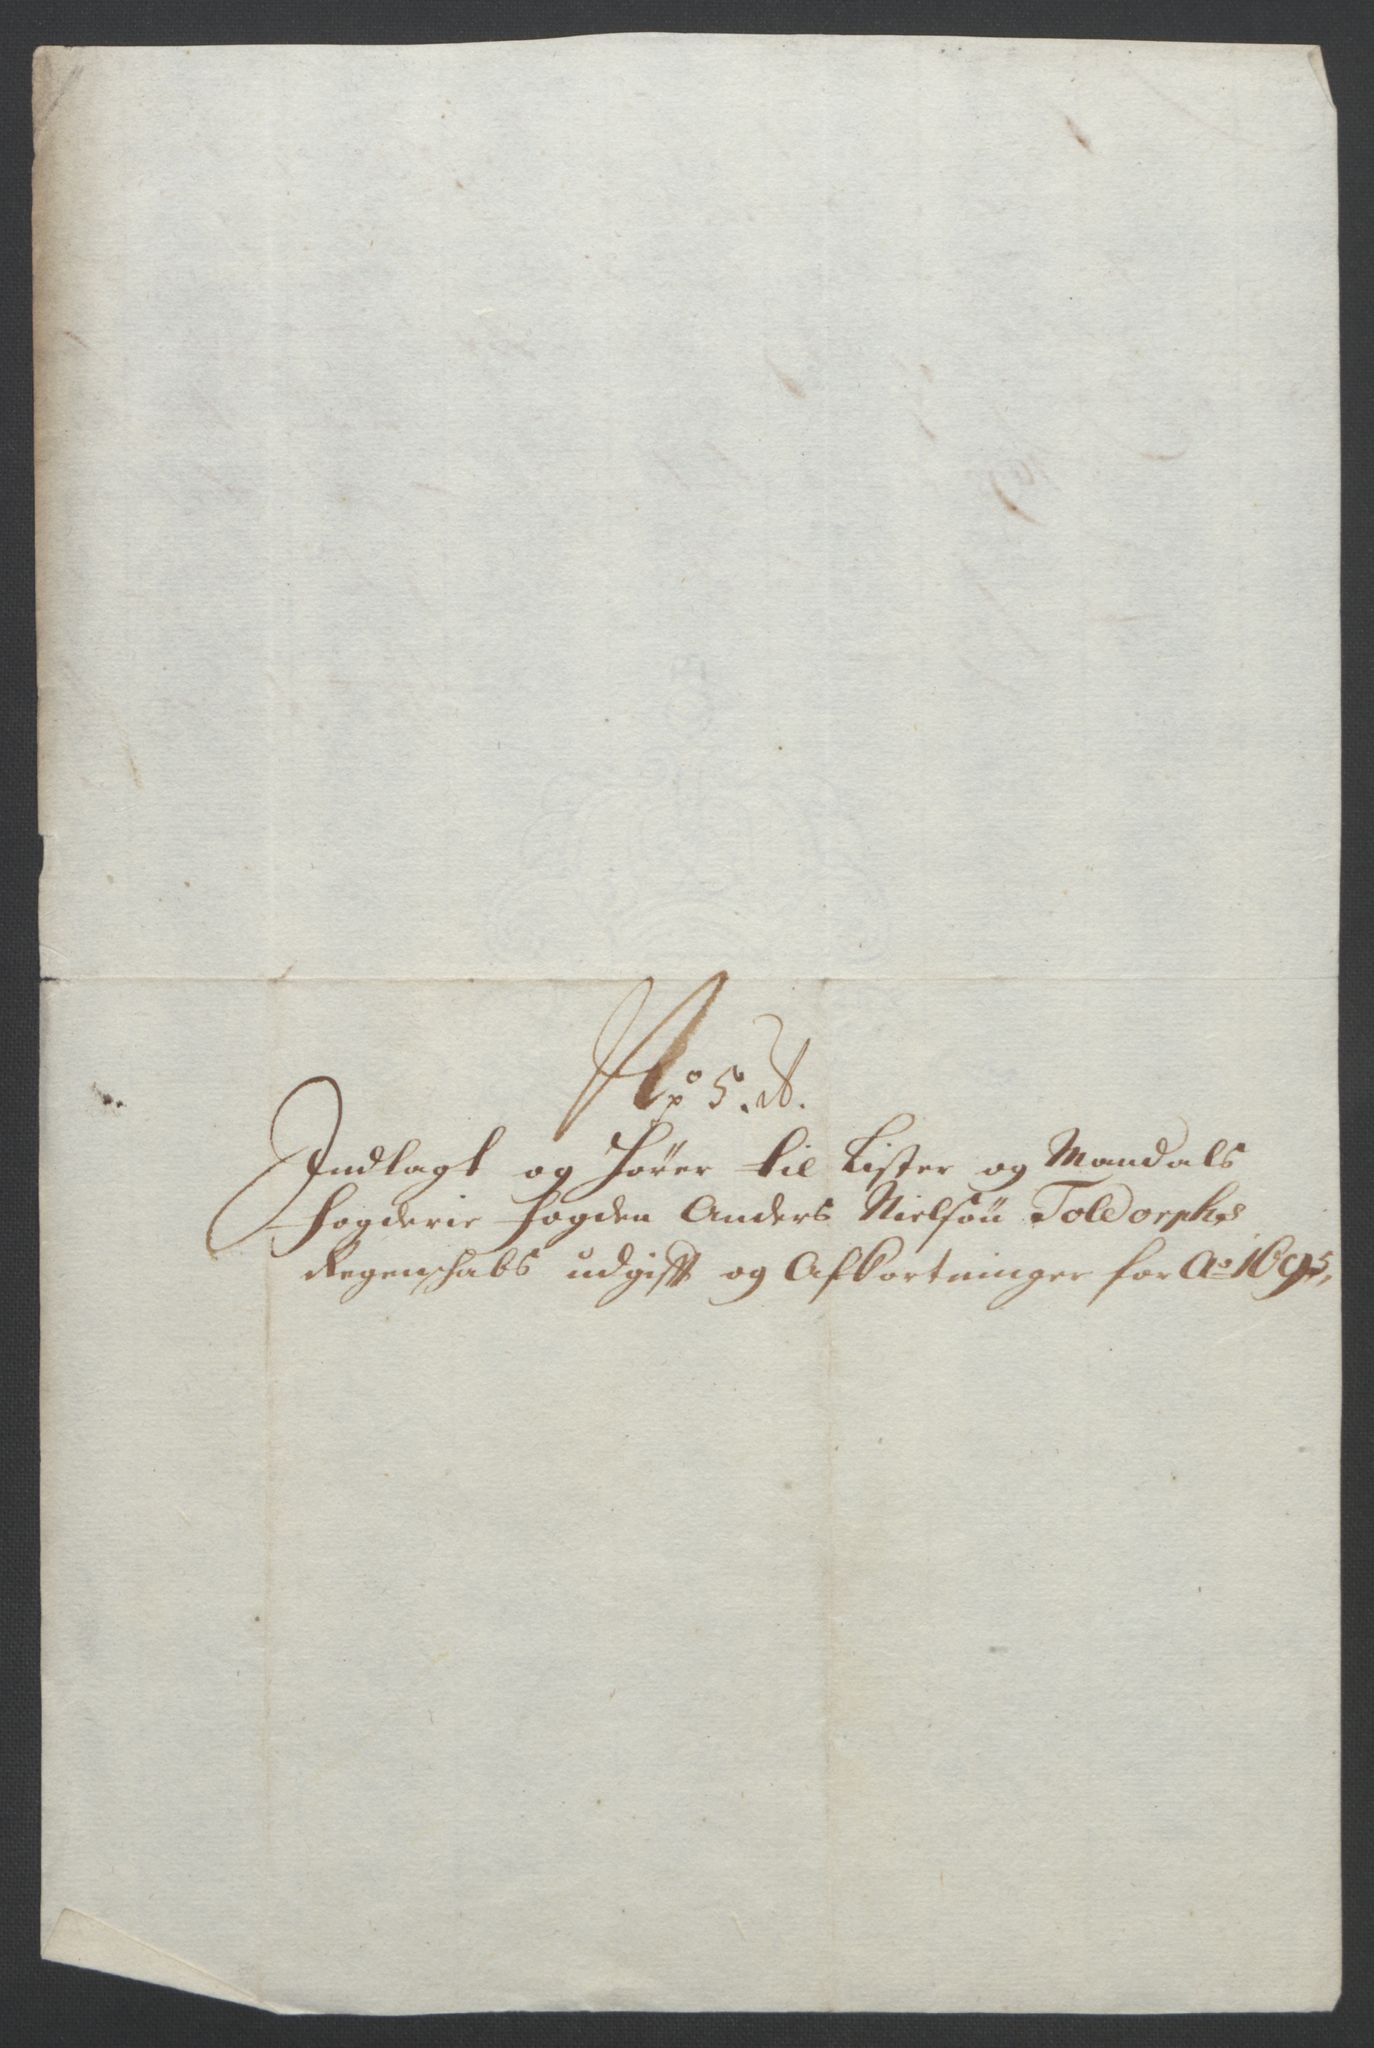 No 5. A.
Indlagt og hører til Lister og Mandals
fogderie fogden Anders Nielsøn Toldorphs
Regenschabs udgifft og Afkortninger for Ao 1695,